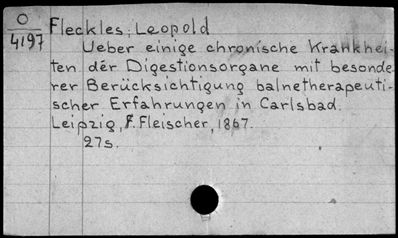 O
4197
Fleckles, Leopold
Ueber einige chronische Krankhei-
ten der Digestionsorgane mit besonde
rer Berücksichtigung balnetherapeuti-
scher Erfahrungen in Carlsbad.
Leipzig, F. Fleischer, 1867.
27s.